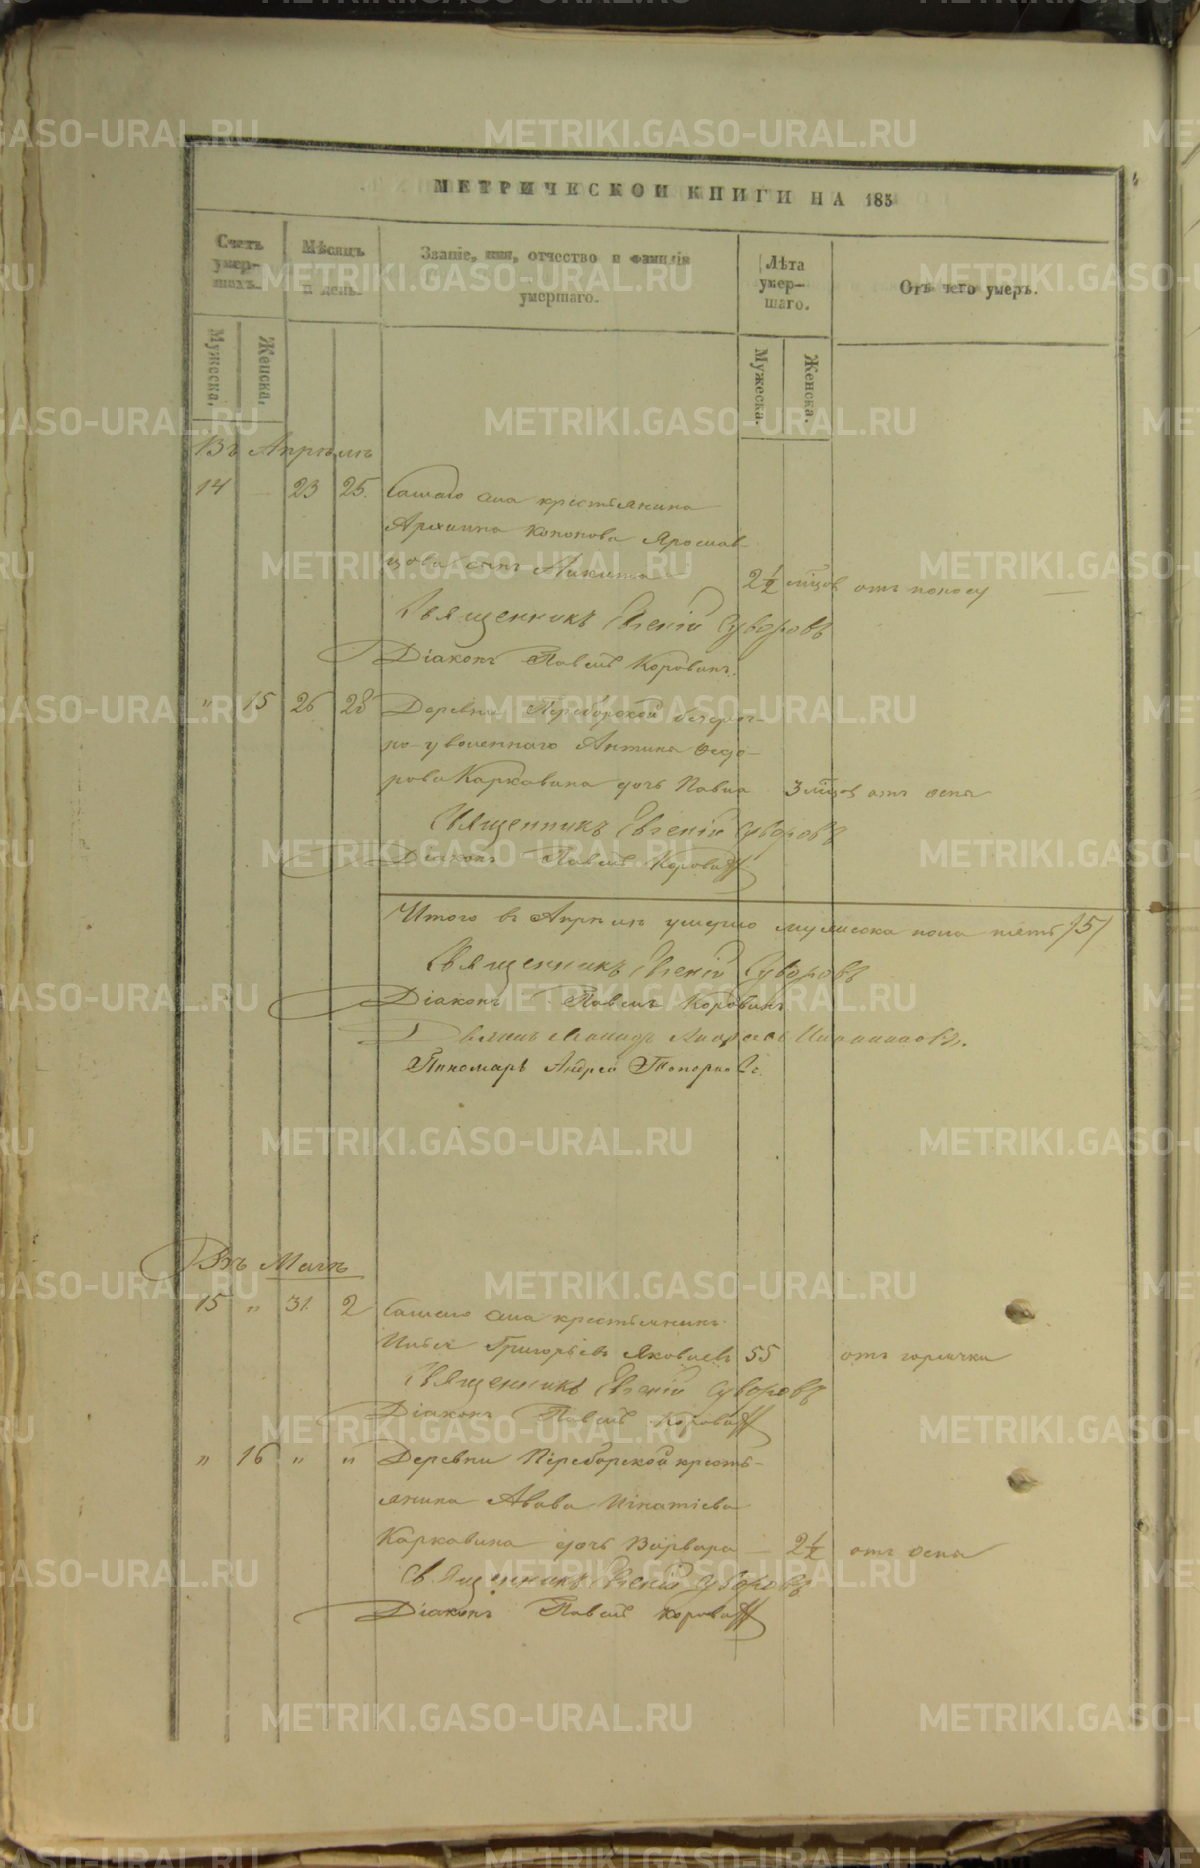 МЕТРИЧЕСКОЙ КНИГИ НА 185
Счетъ умер-шихъ.
Мѣсяцъ и день.
Званіе, имя, отчество и фамилія умершаго.
Лѣта умер-шаго.
Отъ чего умеръ.
Мужеска.
Женска.
Мужеска.
Женска.
Въ Апрѣлѣ
14 23 25. крестьянина
Архиппа
сынъ 2½ мѣсцов отъ поносу
Священникъ Евгеній Суворовъ
Діаконъ Павелъ Коровинъ.
" 15 26 28 Деревни Переборской безсроч-
но-уволеннаго Антипа Ѳедо-
рова Каркавина дочь 3 мѣсцов отъ оспы
Священникъ Евгеній Суворовъ
Діаконъ Павелъ Коровинъ
Итого въ Апрѣлѣ умерло мужеска пола пять /5/
Священникъ Евгеній Суворовъ
Діаконъ Павелъ Коровинъ
Пономарь Андрей Топорковъ.
Въ Маіѣ
15 " 31. 2 крестьянинъ
Григорьевъ Яковлевъ 55 отъ горячки
Священникъ Евгеній Суворовъ
Діаконъ Павелъ Коровинъ
" 16 " " Деревни Переборской кресть-
янина Игнатіева
Каркавина дочь Варвара — 2½ отъ оспы
Священникъ Евгеній Суворовъ
Діаконъ Павелъ Коровинъ
METRIKI.GASO-URAL.RU